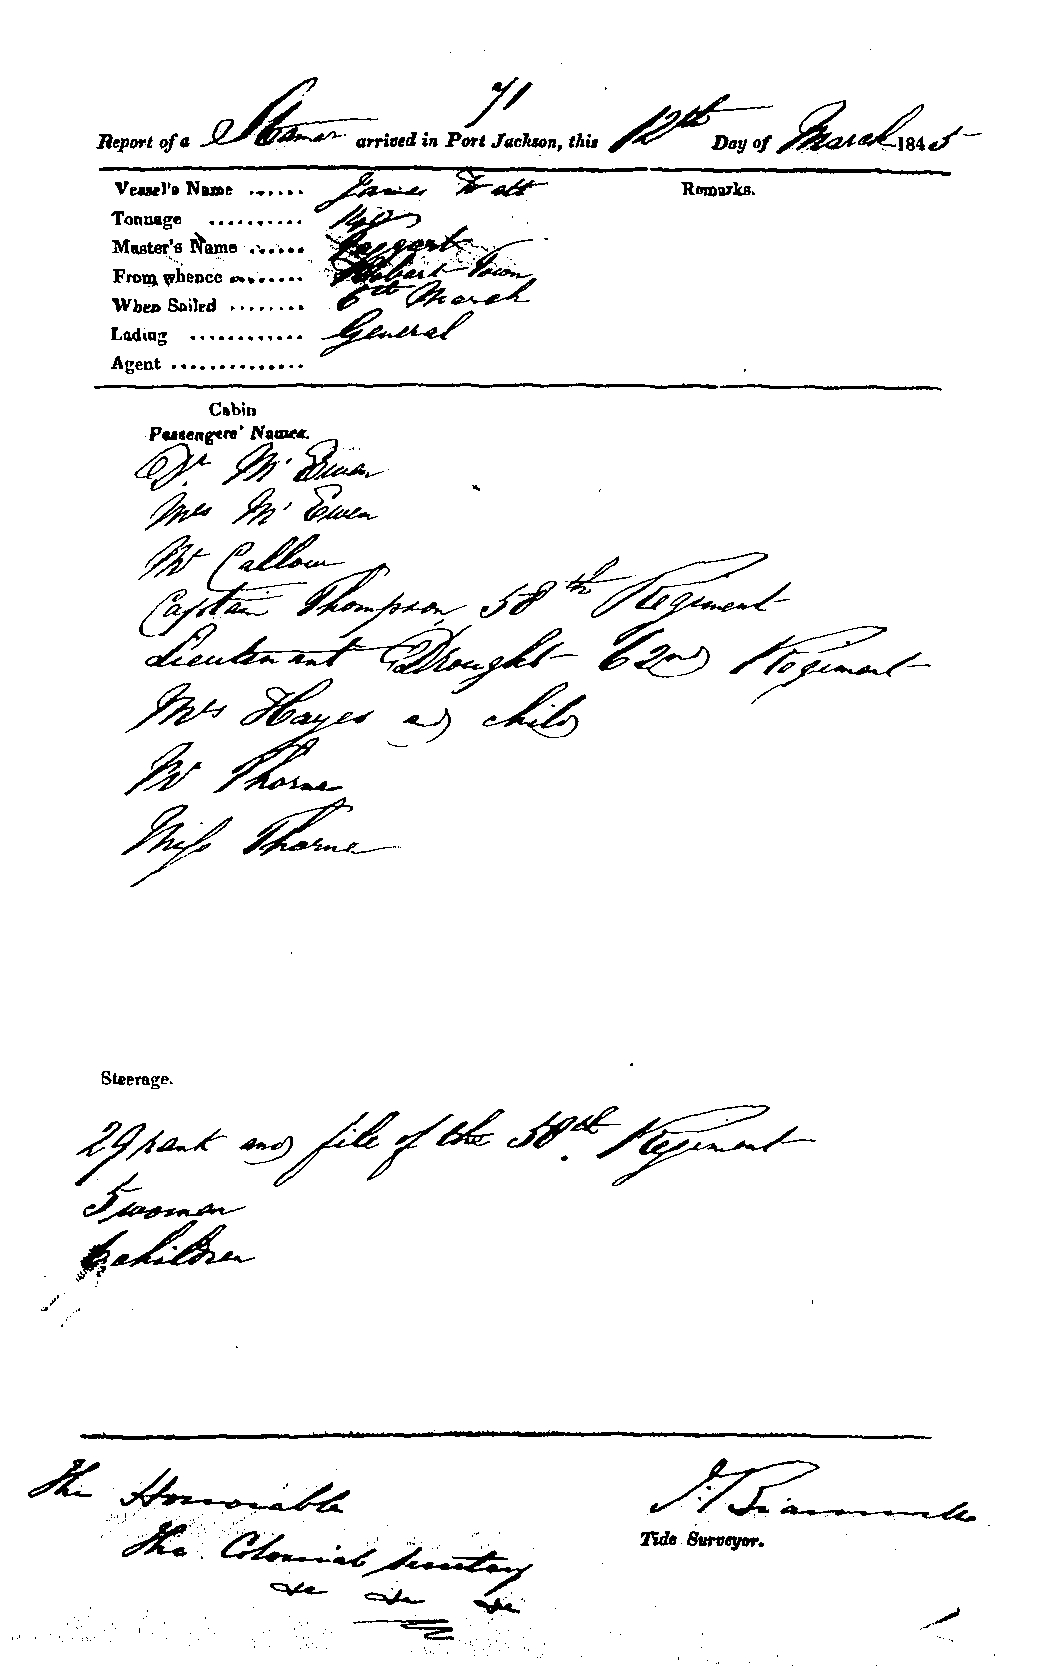 71
Report of a Steamer arrived in Port Jackson, this 12th Day of March 1845
Vessel's Name ...... James Watt
Remarks.
Tonnage ..........
Master's Name ...... Taggart
From whence ....... Hobart Town
When Sailed ........ 6th March
Lading ............ General
Agent ..............
Cabin
Passengers' Names.
Dr. Mc Ewen
Mrs Mc Ewen
Mr Callow
Captain Thompson 58th Regiment
Lieutenant Drought 62nd Regiment
Mrs Hayes and child
Mr Thorne
Miss Thorne
Steerage.
29 rank and file of the 58th Regiment
5 women
6 children
The Honorable
The Colonial Secretary
&c &c &c
Tide Surveyor.